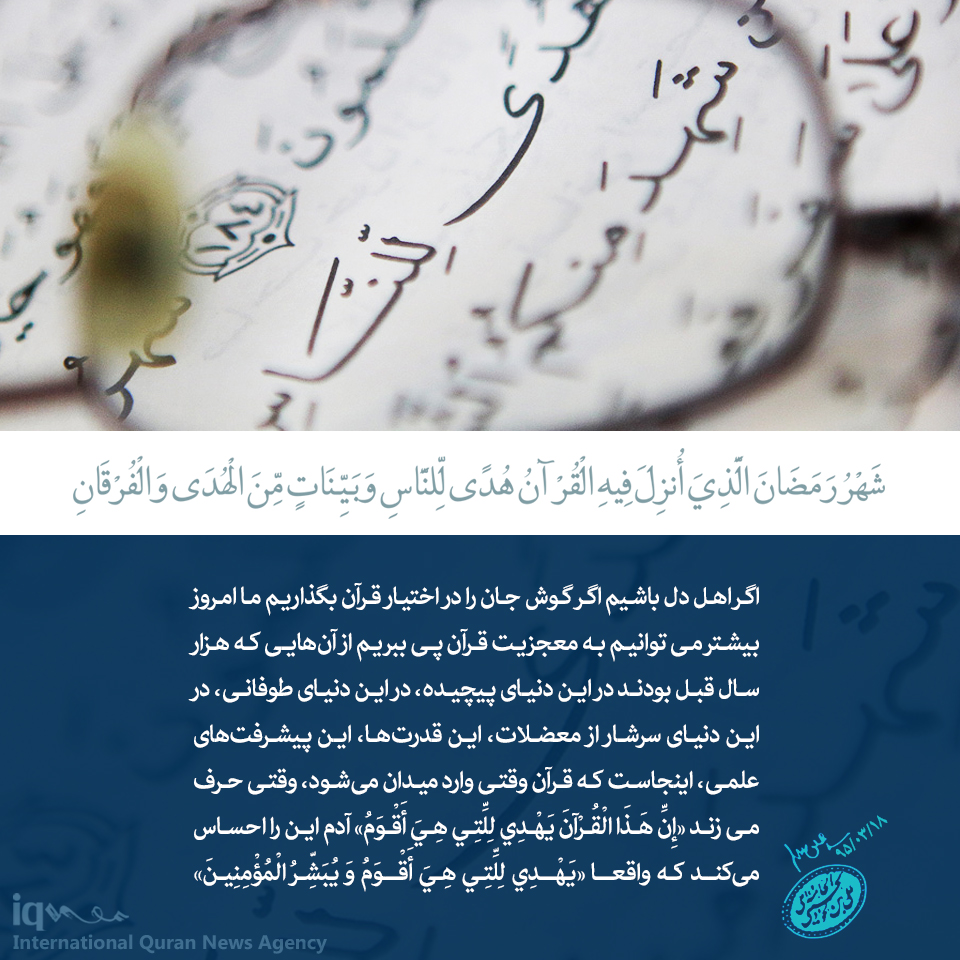 هُدًى
شَهْرُ
لِلنَّاسِ
١٨٤
عَلَىٰ
شَهْرُ رَمَضَانَ الَّذِيَ أُنزِلَ فِيهِ الْقُرْآنُ هُدًى لِّلنَّاسِ وَبَيِّنَاتٍ مِّنَ الْهُدَى وَالْفُرْقَانِ
اگر اهل دل باشیم اگر گوش جان را در اختیار قرآن بگذاریم ما امروز
بیشتر می توانیم به معجزیت قرآن پی ببریم از آن‌هایی که هزار
سال قبل بودند در این دنیای پیچیده، در این دنیای طوفانی، در
این دنیای سرشار از معضلات، این قدرت‌ها، این پیشرفت‌های
علمی، اینجاست که قرآن وقتی وارد میدان می‌شود، وقتی حرف
می زند «إِنِّ هَذَا الْقُرْآنَ يَهْدِي لِلَّتِي هِيَ أَقْوَمُ» آدم این را احساس
می‌کند که واقعا «يَهْدِي لِلَّتِي هِيَ أَقْوَمُ وَ يُبَشِّرُ الْمُؤْمِنِينَ»
۹۵/۰۳/۱۸
iqna
International Quran News Agency